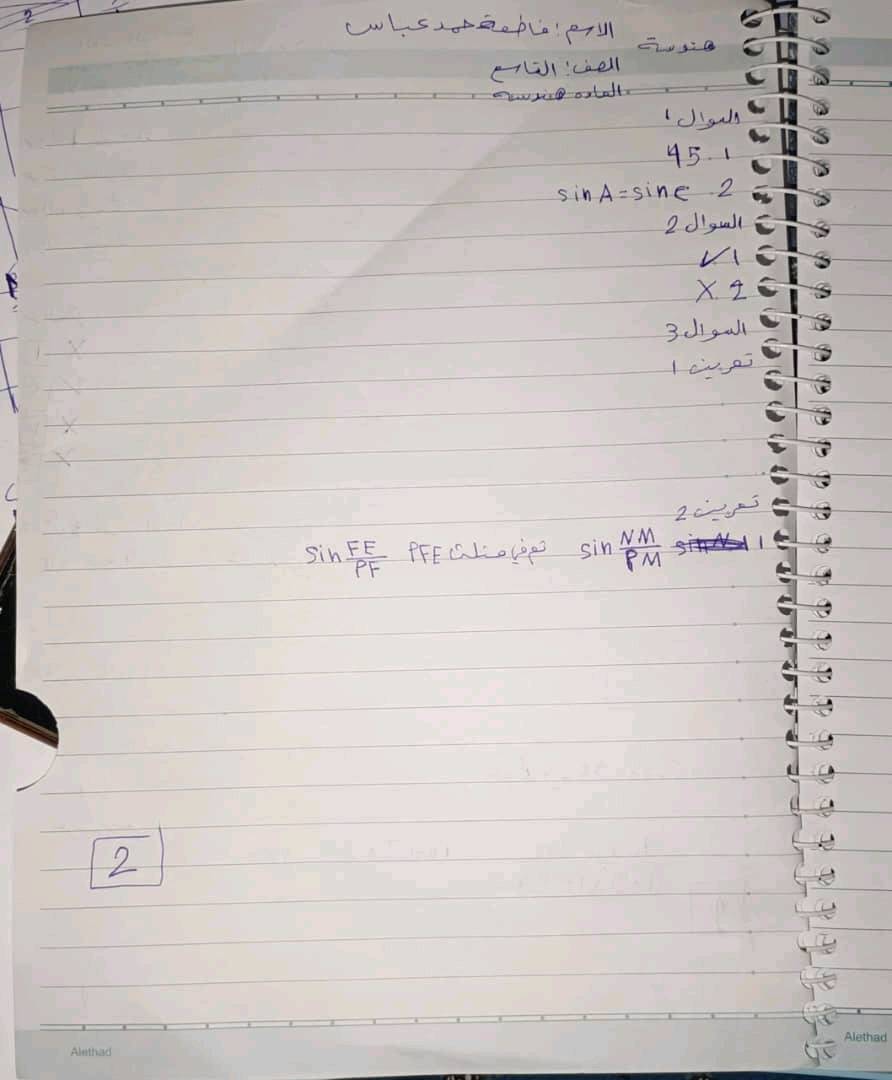 2
هندسة
الاسم: فاطمة حمد عباس
الصف: التاسع
الماده هندسه
السوال 1
1. 45
2. sin A = sin e
السوال 2
1. ✓
2. X
السوال 3
تمرين 1
تمرين 2
1 sin NM/PM في مثلث PFE sin FE/PF
2
Alethad
Alethad